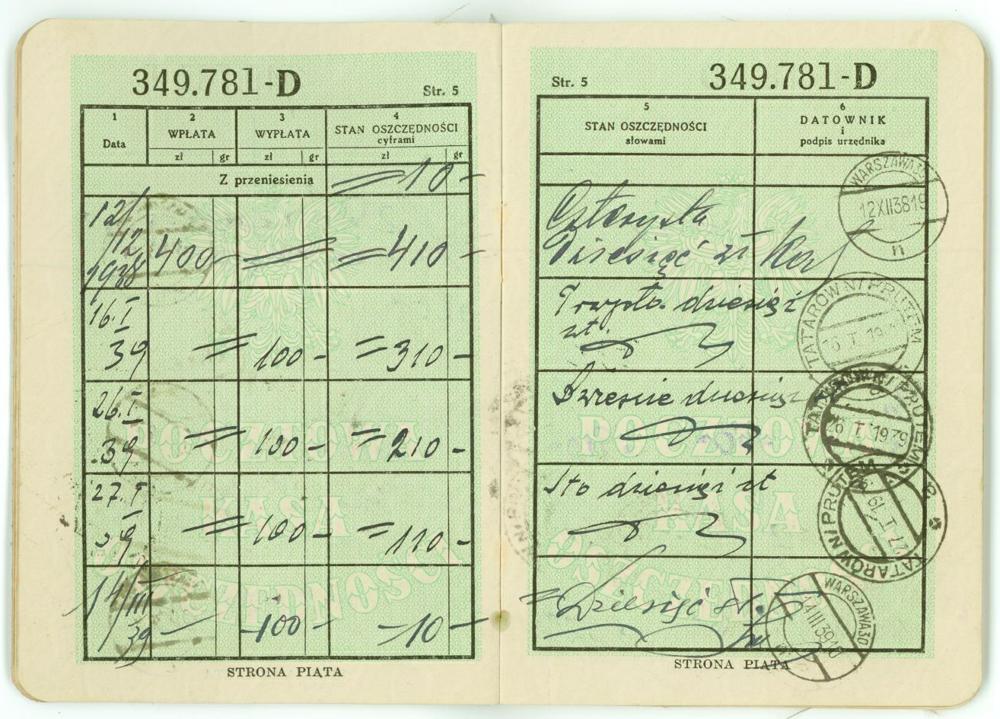 349.781-D
Str. 5
1 Data
2 WPŁATA zł gr
3 WYPŁATA zł gr
4 STAN OSZCZĘDNOŚCI cyframi zł gr
Z przeniesienia = 10 -
12/12 1938 400 - = = 410 -
16.I 39 = 100 - = 310 -
26.I 39 = 100 - = 210 -
27.I 39 = 100 - = 110 -
14/III 39 - 100 - - 10 -
POCZTOWA
KASA
OSZCZĘDNOŚCI
STRONA PIĄTA
Str. 5
349.781-D
5 STAN OSZCZĘDNOŚCI słowami
6 DATOWNIK i podpis urzędnika
WARSZAWA
12 XII 38 19
n
Czterysta
dziesięć zł
Trzysta dziesięć
zł.
TATARÓW N/PRUTEM
16 I 193
Dwieście dziesięć
TATARÓW N/PRUTEM
26 I 1939
Sto dziesięć zł
TATARÓW N/PRUTEM
27 I 19
= Dziesięć zł.
WARSZAWA 30
14 III 39
POCZTOWA
KASA
OSZCZĘDNOŚCI
STRONA PIĄTA